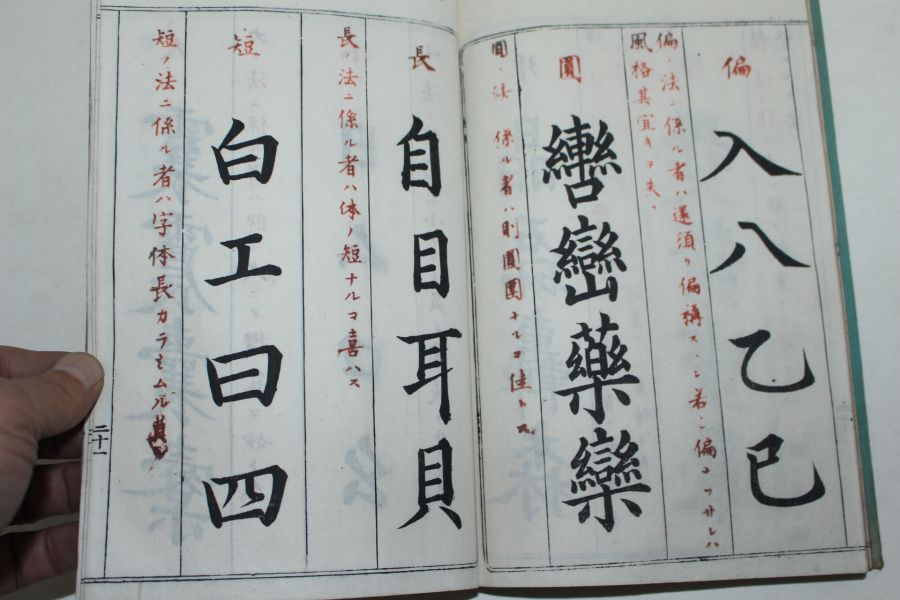 偏
入八乙巳
偏ノ法ニ係ル者ハ還須ク偏称スヘシ若シ偏ナラサレハ
風格其宜キヲ失ハ
圓
轡巒藥欒
圓ノ法 係ル者ハ則圓圍ナルヲ佳トス
長
自目耳貝
長ノ法ニ係ル者ハ体ノ短ナルヲ喜ハス
短
白工曰四
短ノ法ニ係ル者ハ字体長カラシムル
二十一